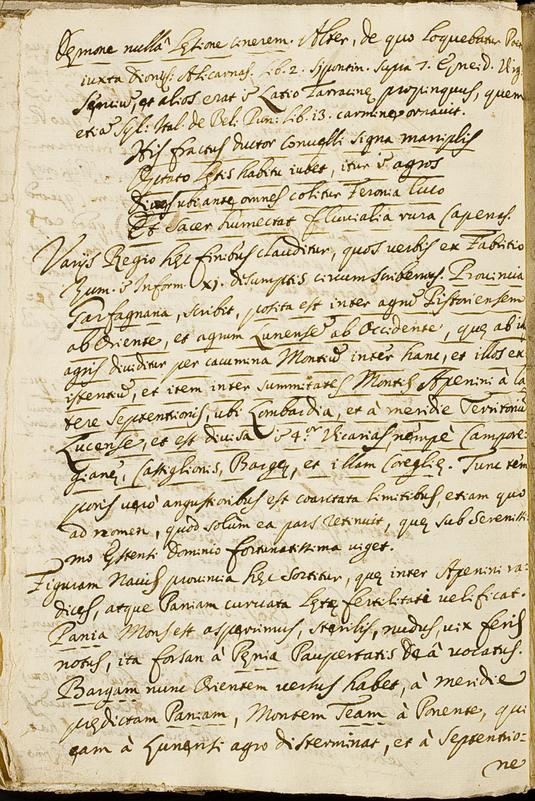 Sermone nullâ Lectione cinerem. Alter, de quo loquebatur
iuxta Dionis: Alicarnas: Lib. 2. Sipuntin. supra 7. Eneid. Virg.
Servius, et alios erat î Latio Tarracinę propinquus, quem
etiã Syl: Ital. de Bel. Pun: Lib. 13. carmine ornavit.
His fractus ductor convelli signa maniplis
itur î agros
Dives ubi ante omnes colitur Feronia luco
Et sacer humectat fluvialia rura Capenas.
Varijs Regio hęc finibus clauditur, quos verbis ex Fabritio
î Inform: XJ. desumptis circumscribemus. Provincia
Garfagnana, scribit, posita est inter agrũ Pistoriensem
ab Oriente, et agrum Lunensẽ ab Occidente, quę ab
agris dividitur per cacumina Montiũ inter hanc, et illos ex
istentiũ, et item inter summitates Montis Apenini à la
tere Septentrionis, ubi Lombardia, et à meridie Territoriũ
Lucense, et est divisa î 4.or Vicarias, nempè Camporegianę
Castiglionis, Bargę, et illam Coreglię. Tunc tem
poris verò angustioribus est coarctata limitibus, etiam quo
ad nomen, quod solum ea pars retinuit, quę sub Serenissi
mo Estensi Dominio fortunatissima viget.
Figuram Navis provincia hęc sortitur, quę inter Apenini ra
dices, atque Paniam curvata lętę fertilitati velificat.
Pania Mons est asperrimus, sterilis, nudus, vix feris
notus, ita forsan à Penia Paupertatis Deâ vocatus.
Bargam nunc Orientem versus habet, à meridie
prędictam Paniam, Montem Team à Ponente, qui
eam à Lunensi agro disterminat, et à Septentrio-
ne